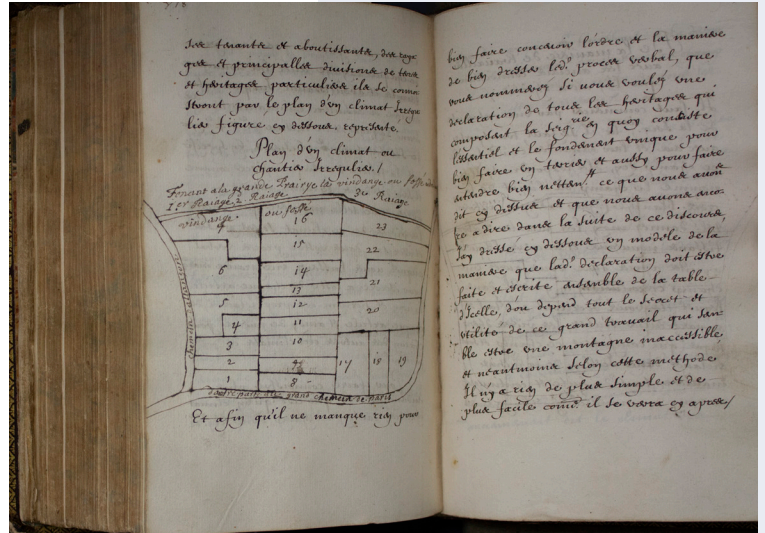 ses tenants et aboutissants, des raya
ges et principalles divisions de terre
et heritages particuliers ils se connoi
stront par le plan d'un climat Irregu
lier figuré en dessous, represente.
Plan d'un climat ou
chantier Irregulier /
Tenant a la grande Prairye la vindange ou fossé
1er Raiage 2 Raiage 3e Raiage
vindange ou fossé
16
23
15
22
6
14
21
13
5
12
20
4
11
3
10
2
9
17
18
19
1
8
d'autre part au grand chemin de Paris
Et afin qu'il ne manque rien pour
bien faire concevoir l'ordre et la maniere
de bien dresser led. procez verbal, que
vous nommerez si vous voulez une
declaration de tous les heritages qui
composent la seig.rie en quoy consiste
l'essentiel et le fondement unique pour
bien faire un terrier et aussy pour faire
entendre bien nettem.t ce que nous avon
dit cy dessus et que nous avons enco
re a dire dans la suite de ce discours,
J'ay dressé cy dessous un modele de la
maniere que lad. declaration doit estre
faite et escrite ensemble de la table
d'icelle, d'ou depend tout le secret et
utilité de ce grand travail qui sem
ble estre une montagne inaccessible
et neantmoins selon cette methode
Il n'y a rien de plus simple et de
plus facile come il se verra cy apres /